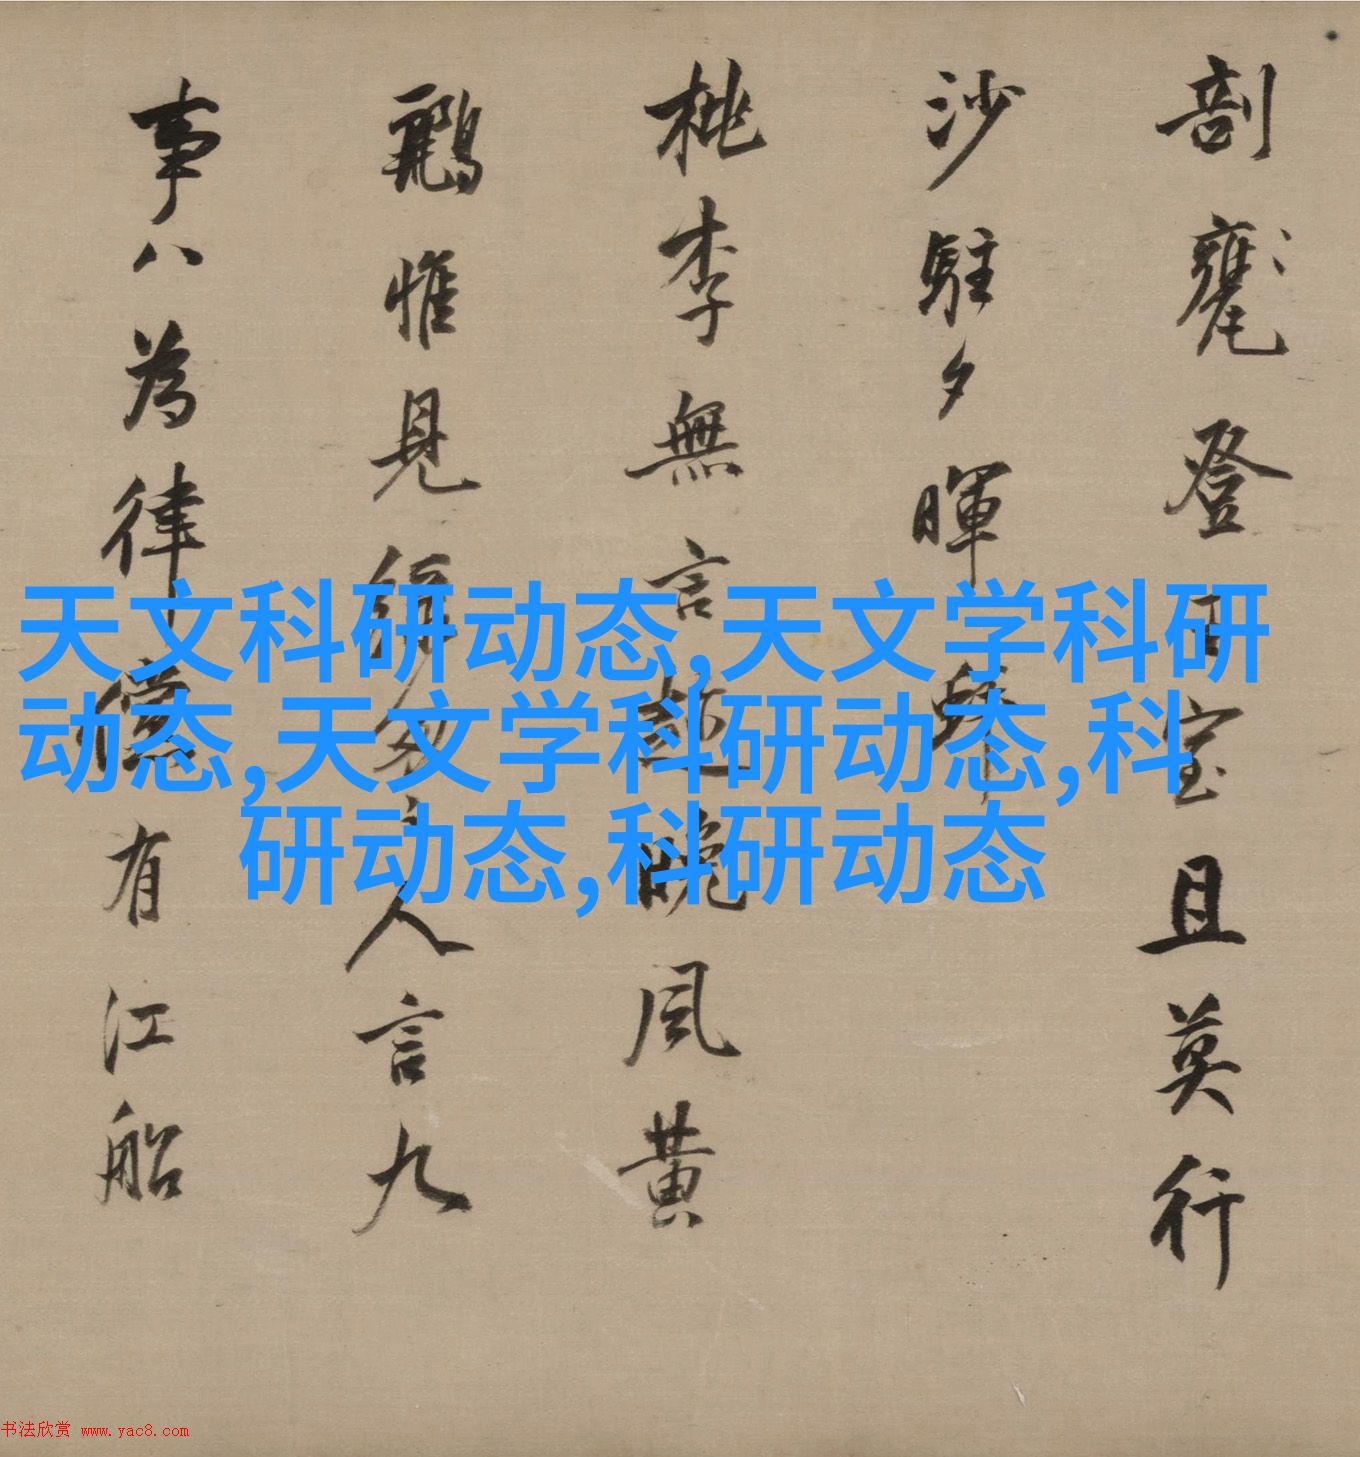 剖甕登玉室且莫行
沙駐夕暉
桃李無言越晚風黃
鸝惟見人言九
事八為律有江船
天文科研动态,天文学科研
动态,天文学科研动态,科
研动态,科研动态
书法欣赏 www.yac8.com